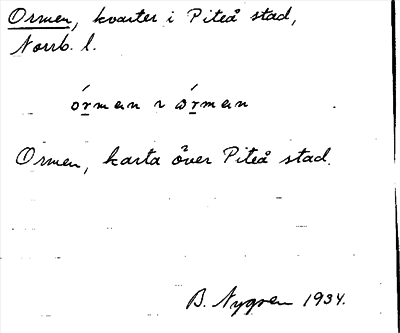 Ormen, kvarter i Piteå stad,
Norrb. l.
órman ɿ ɷ́rman
Ormen, karta över Piteå stad.
B. Nygren 1934.